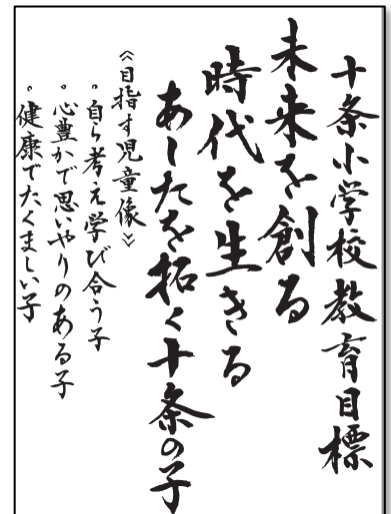 十条小学校教育目標
未来を創る
時代を生きる
あしたを拓く十条の子
《目指す児童像》
。自ら考え学び合う子
。心豊かで思いやりのある子
。健康でたくましい子